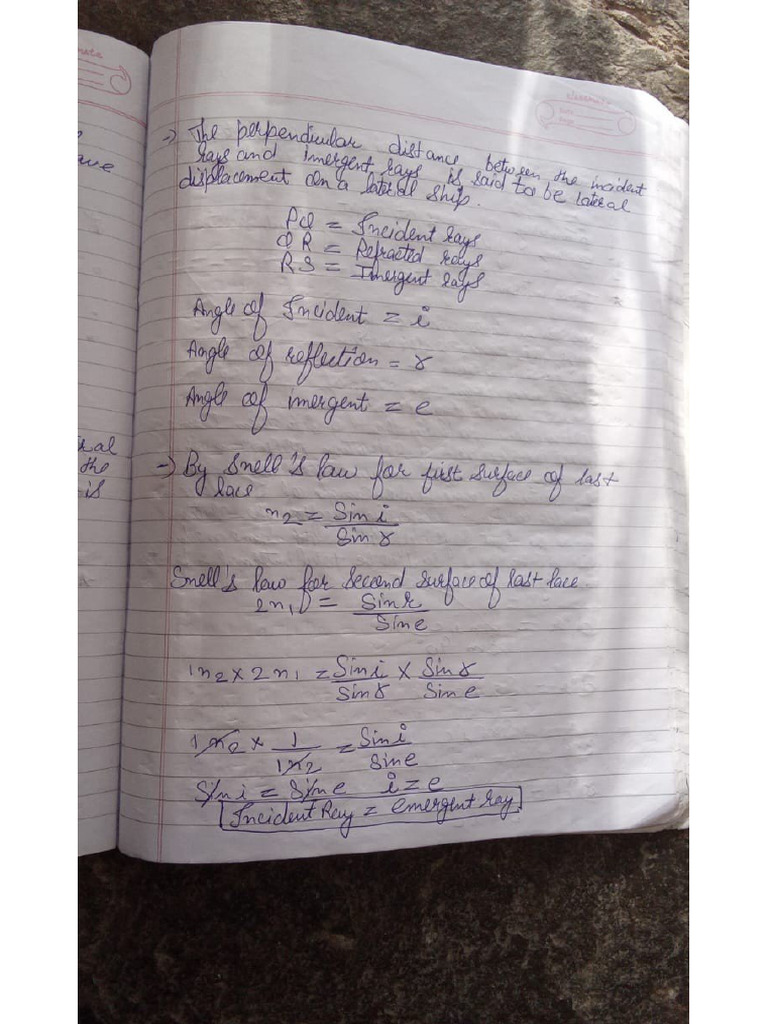 ave
ral
the
is
classmate
Date
Page
→ The perpendicular distance between the incident
rays and imergent rays is said to be lateral
displacement on a lateral ship.
PQ = Incident rays
QR = Refracted rays
RS = Imergent rays
Angle of Incident = i
Angle of reflection = r
Angle of imergent = e
→ By Snell's law for first surface of last
lace
n2 = Sin i
Sin r
Snell's law for second surface of last lace
2n1 = Sin r
Sin e
1n2 × 2n1 = Sin i × Sin r
Sin r Sin e
1n2 × 1 = Sin i
1n2 Sin e
Sin i = Sin e i = e
Incident Ray = emergent ray